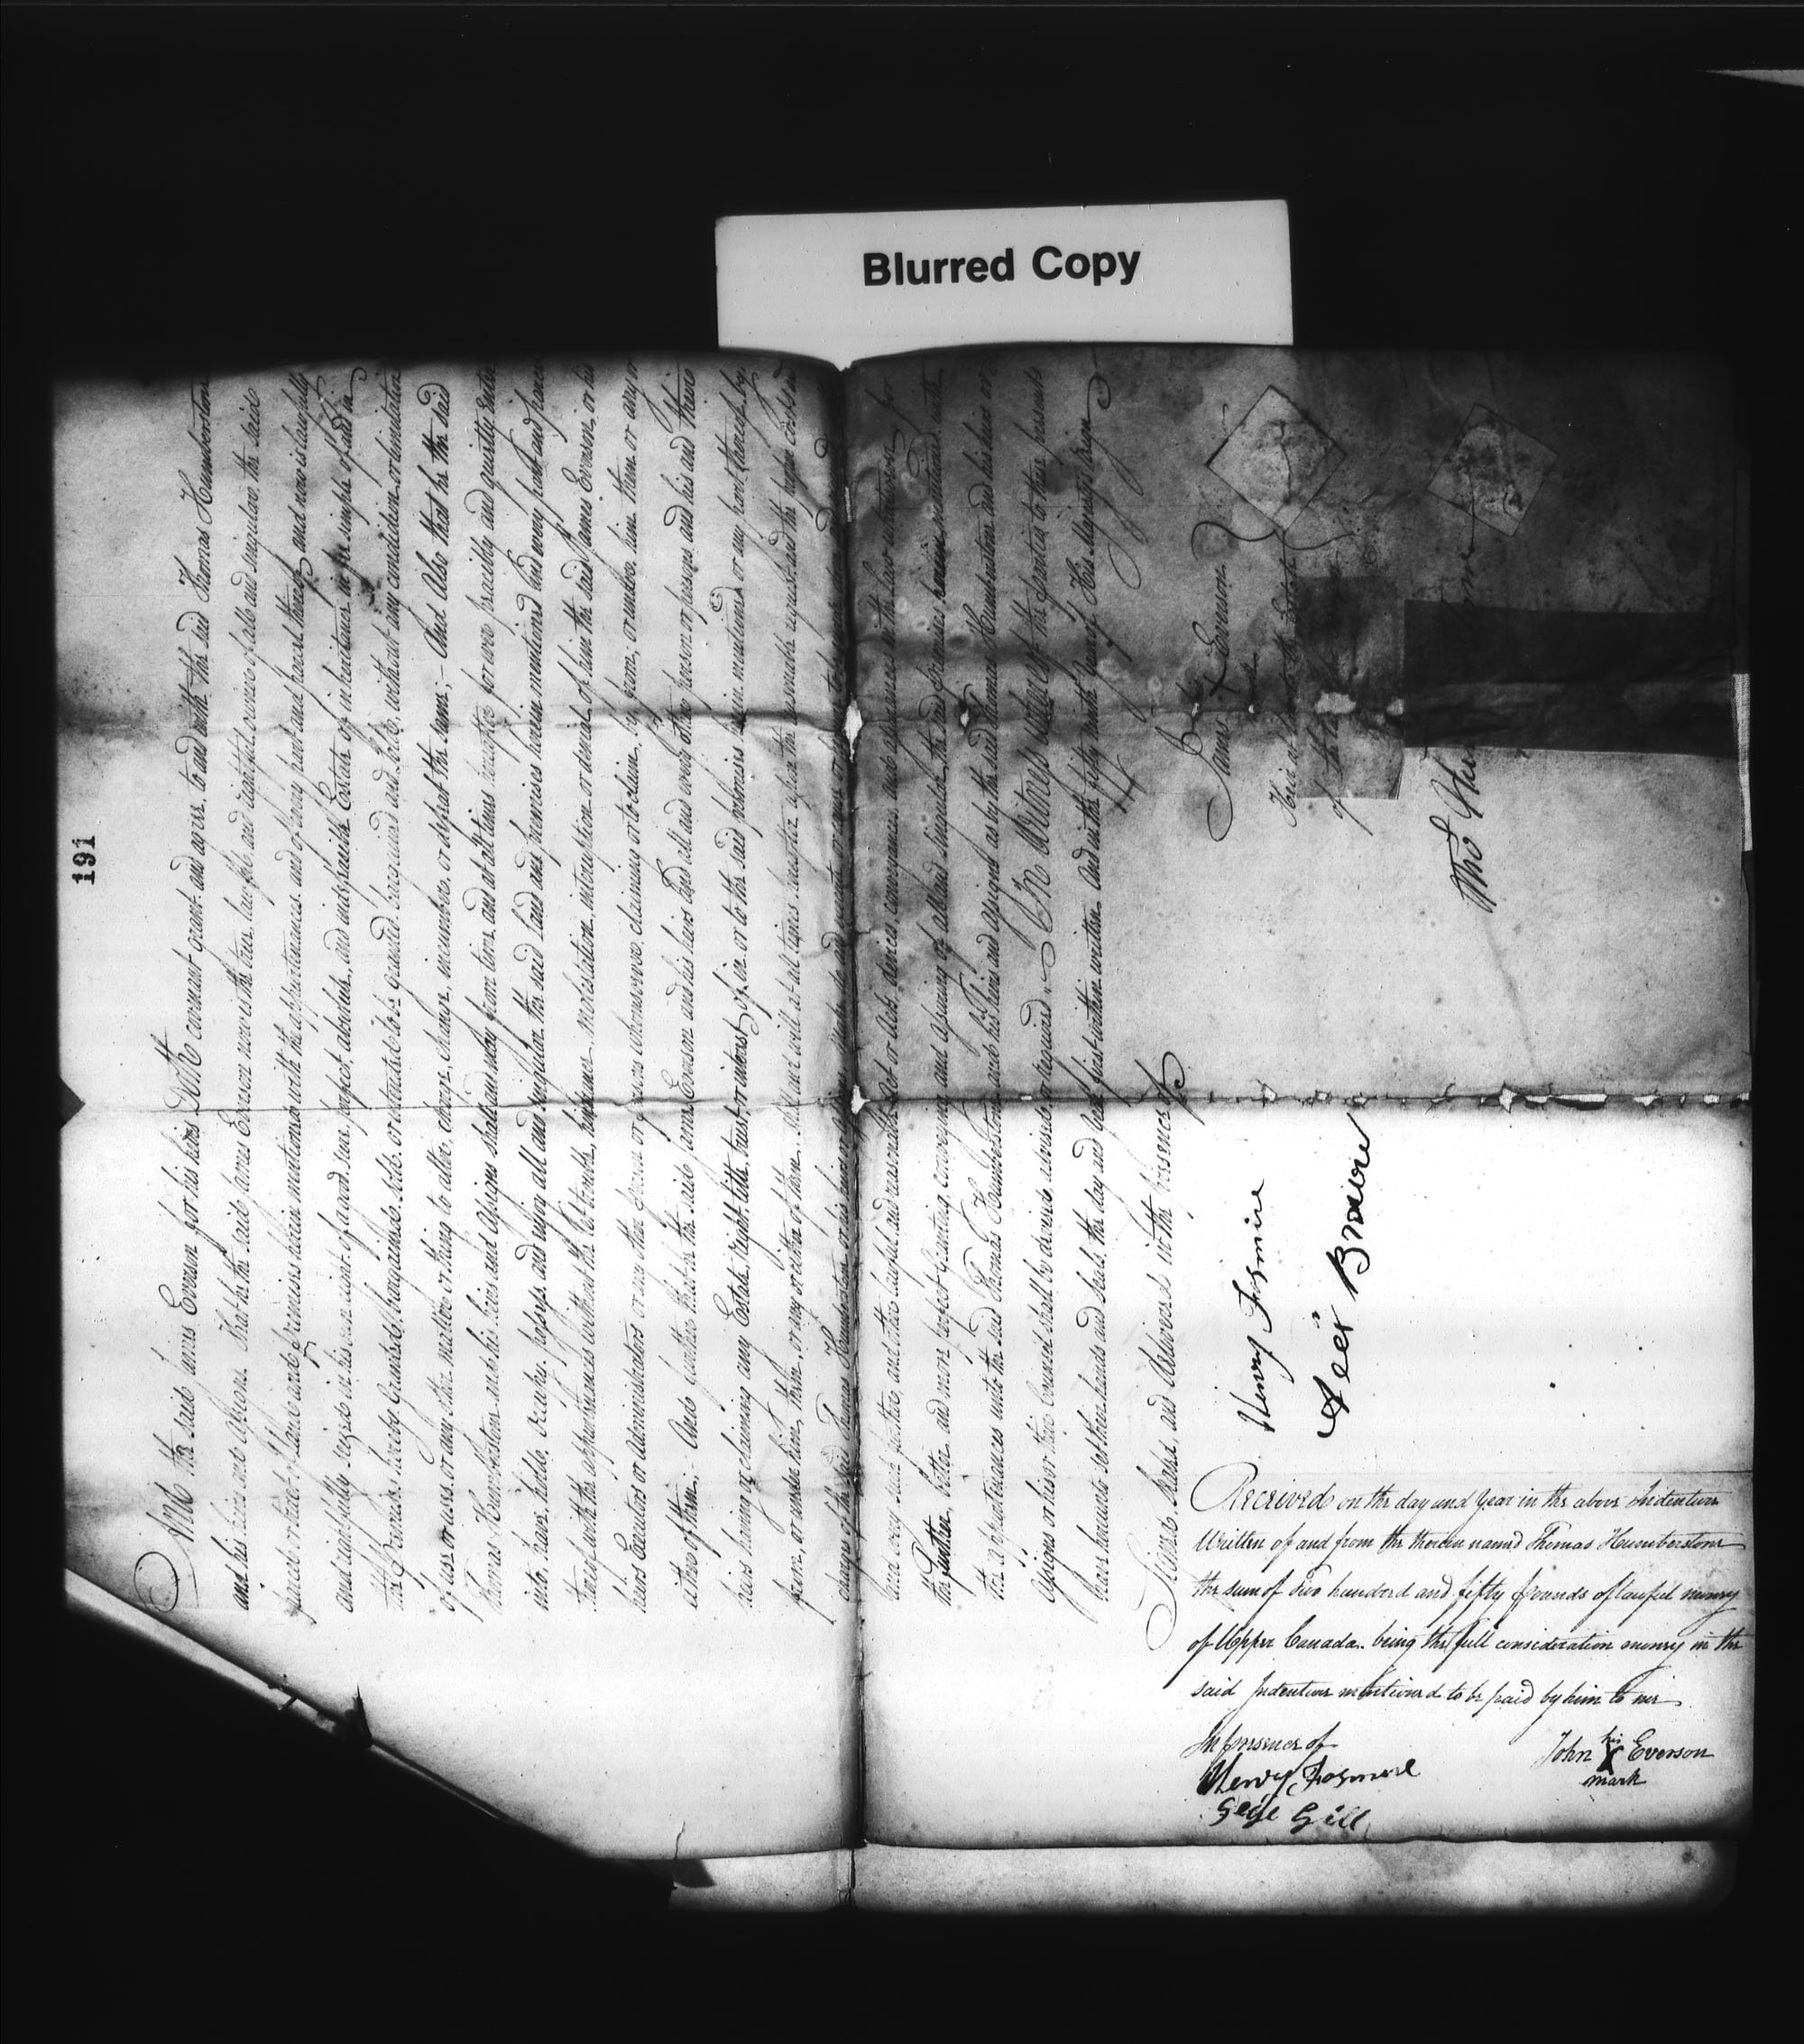 Blurred Copy
191
And the said James Everson for his heirs Doth covenant grant and agree to and with the said Thomas Humberstone
and his heirs and Assigns. That he the said James Everson now is the true, lawful and rightful owner of all and singular the said
parcel or tract of land and premises herein mentioned with the appurtenances and of every part and parcel thereof, and now is lawfully
and rightfully seized in his own right of a good, sure, perfect, absolute, and indefeasible Estate of inheritance in fee simple of and in
the Premises hereby Granted, bargained, sold, or intended to be granted bargained and sold, without any condition or limitation
of use or uses, or any other matter or thing to alter, charge, change, incumber, or defeat the same;- And Also that he the said
Thomas Humberstone and his heirs and Assigns shall and may from time and at all times hereafter for ever peaceably and quietly enter
into, have, hold, occupy, possess, and enjoy all and singular the said land and premises herein mentioned and every part and parcel
thereof with the appurtenances without the let trouble, hindrance, molestation, interruption or denial of him the said James Everson, or his
heirs Executors or Administrators or any other person or persons whomsoever claiming or to claim by from, or under him them or any or
either of them;- And further that he the said James Everson and his heirs And all and every other person or persons and his and their
heirs having or claiming any Estate, right, title, trust, or interest of in or to the said premises herein mentioned or any part thereof by
from, or under him, them, or any or either of them, shall and will at all times hereafter upon the reasonable request and the proper costs and
charges of the said Thomas Humberstone or his heirs
and every such further and other lawful and reasonable Act or Acts, devices, conveyances and assurances in the law whatsoever for
the further, better and more perfect granting, conveying and assuring of all and singular the said premises herein mentioned with
their appurtenances unto the said Thomas Humberstone and his Heirs and Assigns as by the said Thomas Humberstone and his heirs or
Assigns or his or their Counsel shall be devised advised or required. In Witness whereof the parties to these presents
have hereunto set their hands and seals the day and year first within written. And in the fifty ninth year of His Majestys Reign
Signed, Sealed, and Delivered in the presence of
Henry Fosmire
James his X mark Everson
Heir at law
of
Thos
Received on the day and Year in the above Indenture
Written of and from the therein named Thomas Humberstone
the sum of Two hundred and fifty pounds of lawful money
of Upper Canada. being the full consideration money in the
said Indenture mentioned to be paid by him to me
In presence of
Henry Fosmire
John his X mark Everson
Geoe Gill